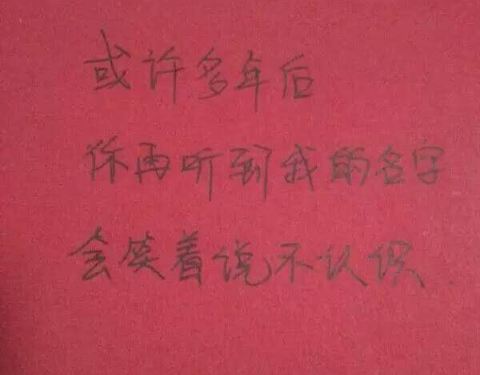 或许多年后
你再听到我的名字
会笑着说不认识